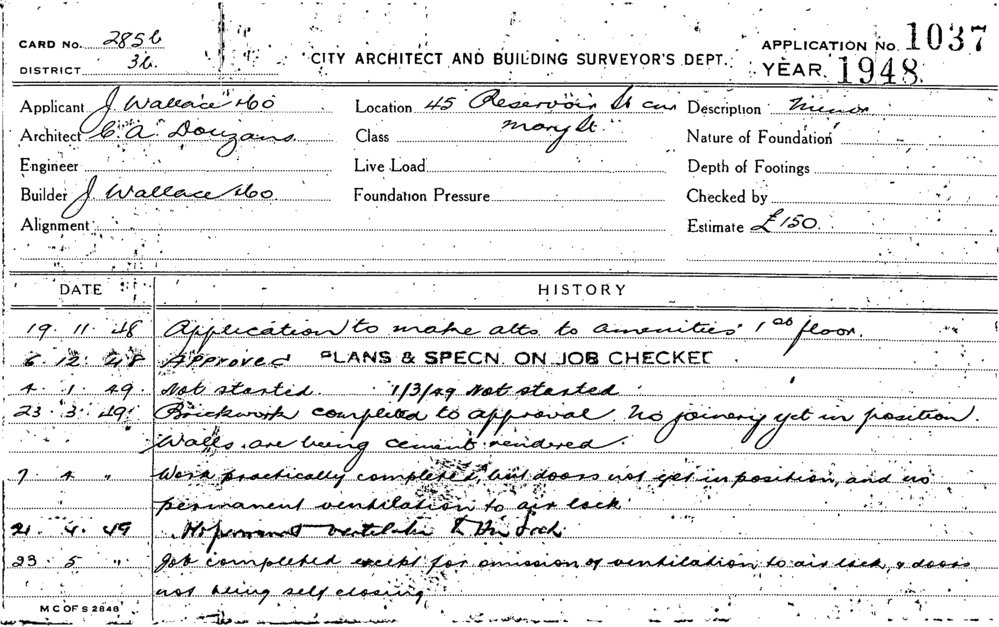 CARD No. 2856
DISTRICT 36
CITY ARCHITECT AND BUILDING SURVEYOR'S DEPT.
APPLICATION No. 1037
YEAR. 1948
Applicant J Wallace & Co
Location 45 Reservoir St cnr
Description Minor
Architect C. A. Douzans
Class Mary St.
Nature of Foundation
Engineer
Live Load
Depth of Footings
Builder J Wallace & Co.
Foundation Pressure
Checked by
Alignment
Estimate £150.
DATE HISTORY
19. 11. 48 Application to make alts. to amenities 1st floor.
6. 12. 48 Approved PLANS & SPECN. ON JOB CHECKED
4. 1. 49. Not started. 1/3/49 Not started.
23. 3. 49. Brickwork completed to approval. No joinery yet in position.
Walls are being cement rendered.
7 4 " Work practically completed, but doors not yet in position, and no
permanent ventilation to air lock.
21. 4. 49 No permanent ventilation to air lock.
23. 5 " Job completed except for omission of ventilation to air lock, & doors
not being self closing.
M C OF S 2848